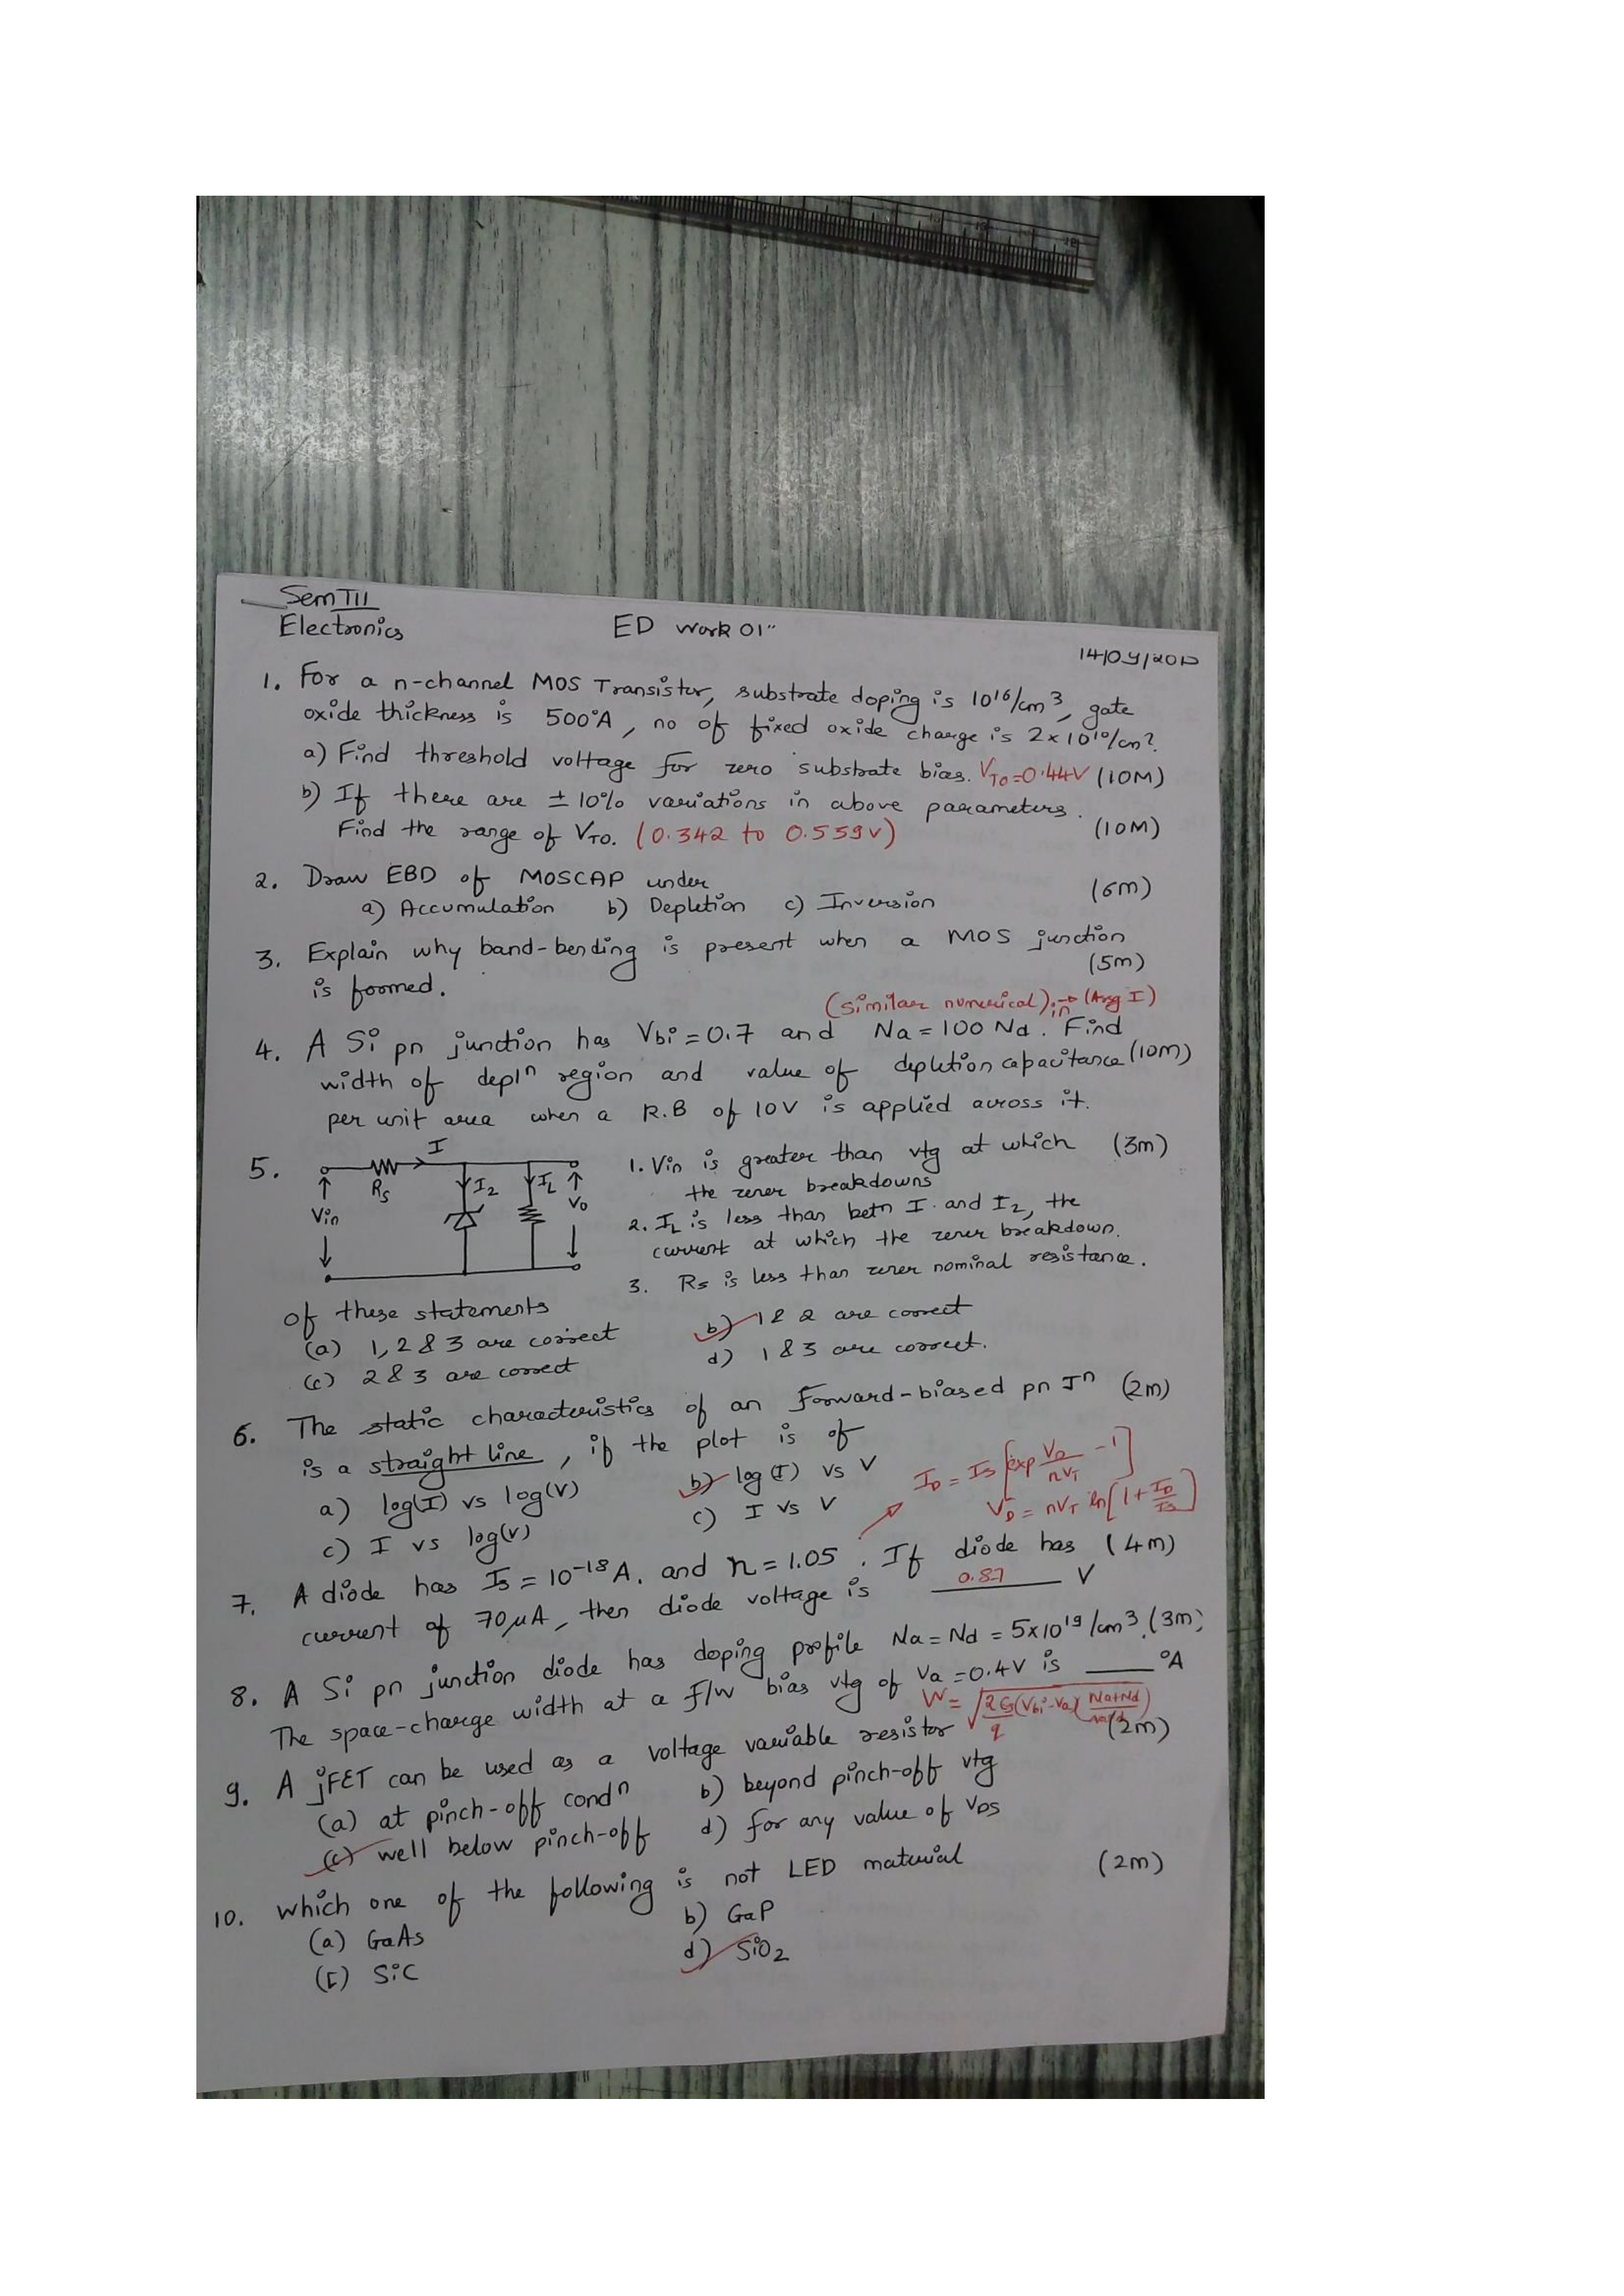 Sem III
Electronics
ED Work 01"
1. For a n-channel MOS Transistor, substrate doping is 10¹⁶/cm³, gate
oxide thickness is 500°A, no of fixed oxide charge is 2x10¹⁰/cm².
a) Find threshold voltage for zero substrate bias. VTO=0.44V (10M)
b) If there are ± 10% variations in above parameters.
Find the range of VTO. (0.342 to 0.559v) (10M)
2. Draw EBD of MOSCAP under (6m)
a) Accumulation b) Depletion c) Inversion
3. Explain why band-bending is present when a MOS junction
is formed. (5m)
(similar numerical) in → (Assg I)
4. A Si pn junction has Vbi = 0.7 and Na = 100 Nd. Find
width of deplⁿ region and value of depletion capacitance (10m)
per unit area when a R.B of 10V is applied across it.
5. I
Rs
IZ
IL
Vin
Vo
1. Vin is greater than vtg at which (3m)
the zener breakdowns
2. IL is less than betn I and IZ, the
current at which the zener breakdown.
3. Rs is less than zener nominal resistance.
of these statements
(a) 1, 2 & 3 are correct b) 1 & 2 are correct
(c) 2 & 3 are correct d) 1 & 3 are correct.
6. The static characteristics of an Forward-biased pn Jⁿ (2m)
is a straight line, if the plot is of
a) log(I) vs log(V) b) log(I) vs V
c) I vs log(v) c) I vs V
ID = Is [exp VD/nVT - 1]
VD = nVT ln[1 + ID/Is]
7. A diode has Is = 10⁻¹⁸A. and n = 1.05. If diode has (4m)
current of 70μA, then diode voltage is 0.87 V
8. A Si pn junction diode has doping profile Na = Nd = 5x10¹⁹/cm³. (3m)
The space-charge width at a F/W bias vtg of Va = 0.4V is ____ °A
W = √2Es/q (Vbi - Va) (Na+Nd/NaNd)
9. A jFET can be used as a voltage variable resistor (2m)
(a) at pinch-off condⁿ b) beyond pinch-off vtg
(c) well below pinch-off d) for any value of VDS
10. which one of the following is not LED material (2m)
(a) GaAs b) GaP
(c) SiC d) SiO2